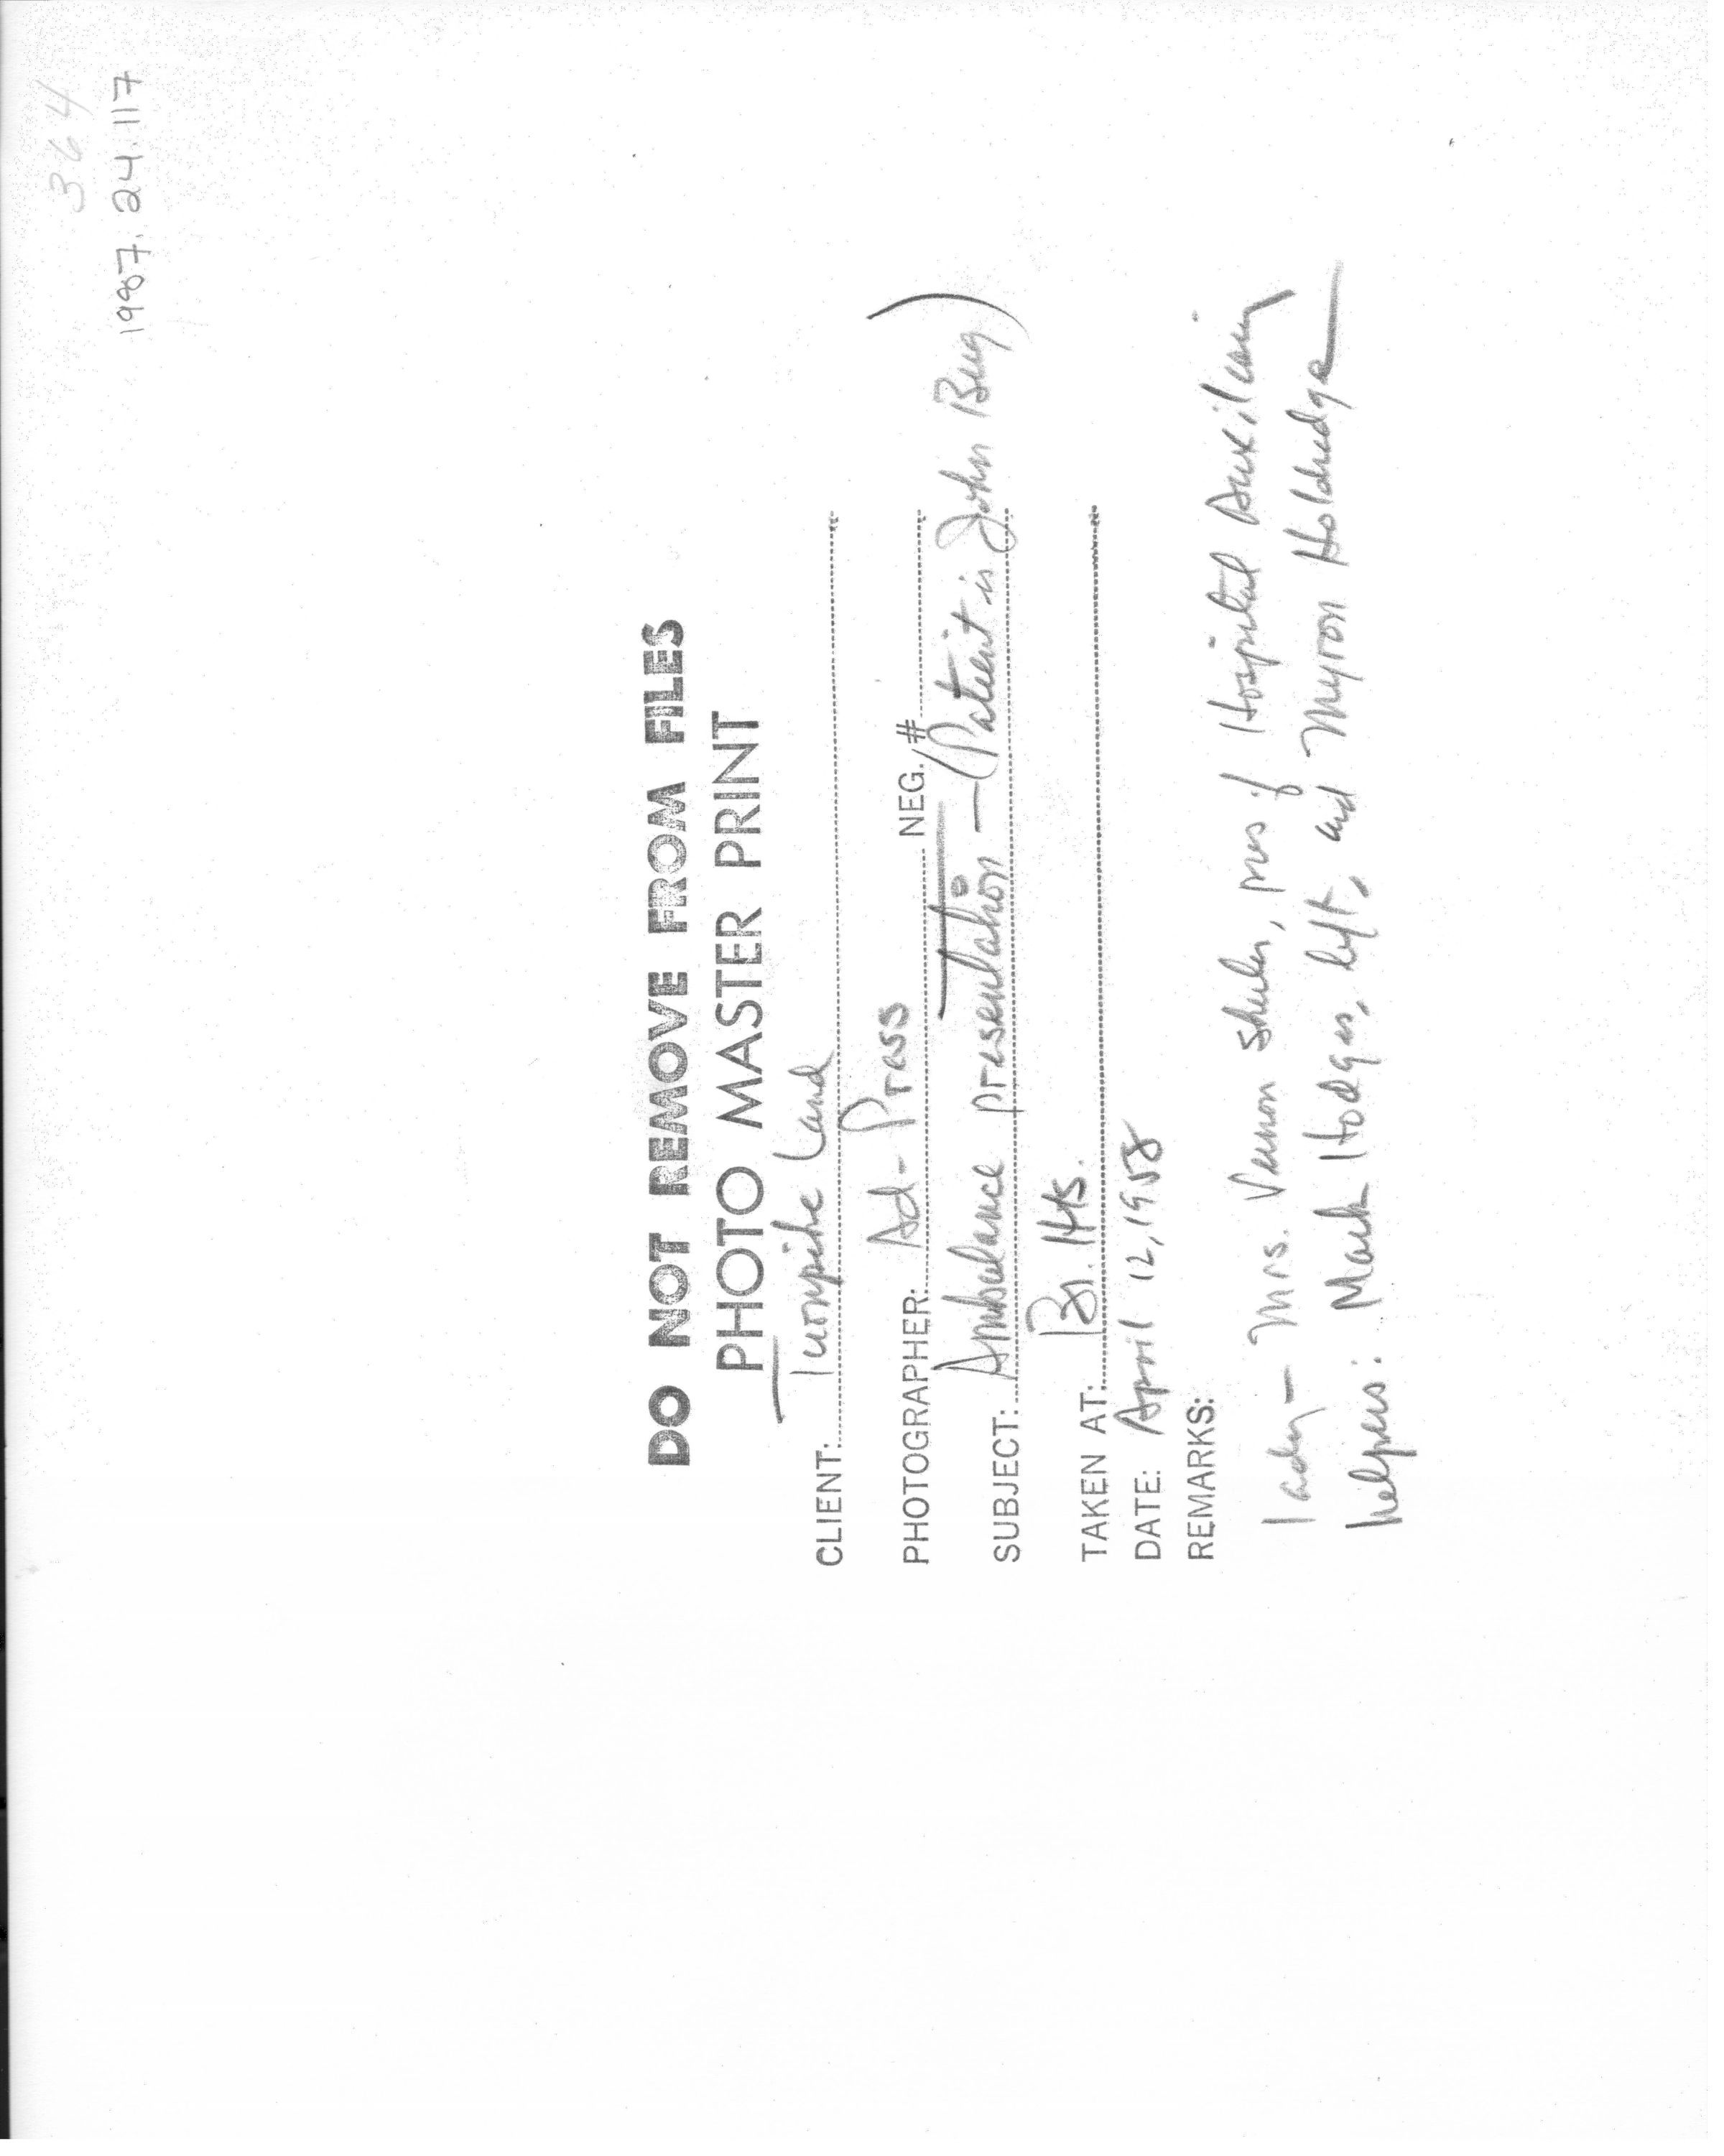 364
1987.24.117
DO NOT REMOVE FROM FILES
PHOTO MASTER PRINT
CLIENT: Turnpike Land
PHOTOGRAPHER: Ad-Press NEG. #
SUBJECT: Ambulance presentation — (Patient is John Berg)
TAKEN AT: Bn. Hts.
DATE: April 12, 1958
REMARKS:
Lady — Mrs. Vernon Shuler, pres of Hospital Auxiliary
helpers: Mark Hodges, left, and Myron Holdredge